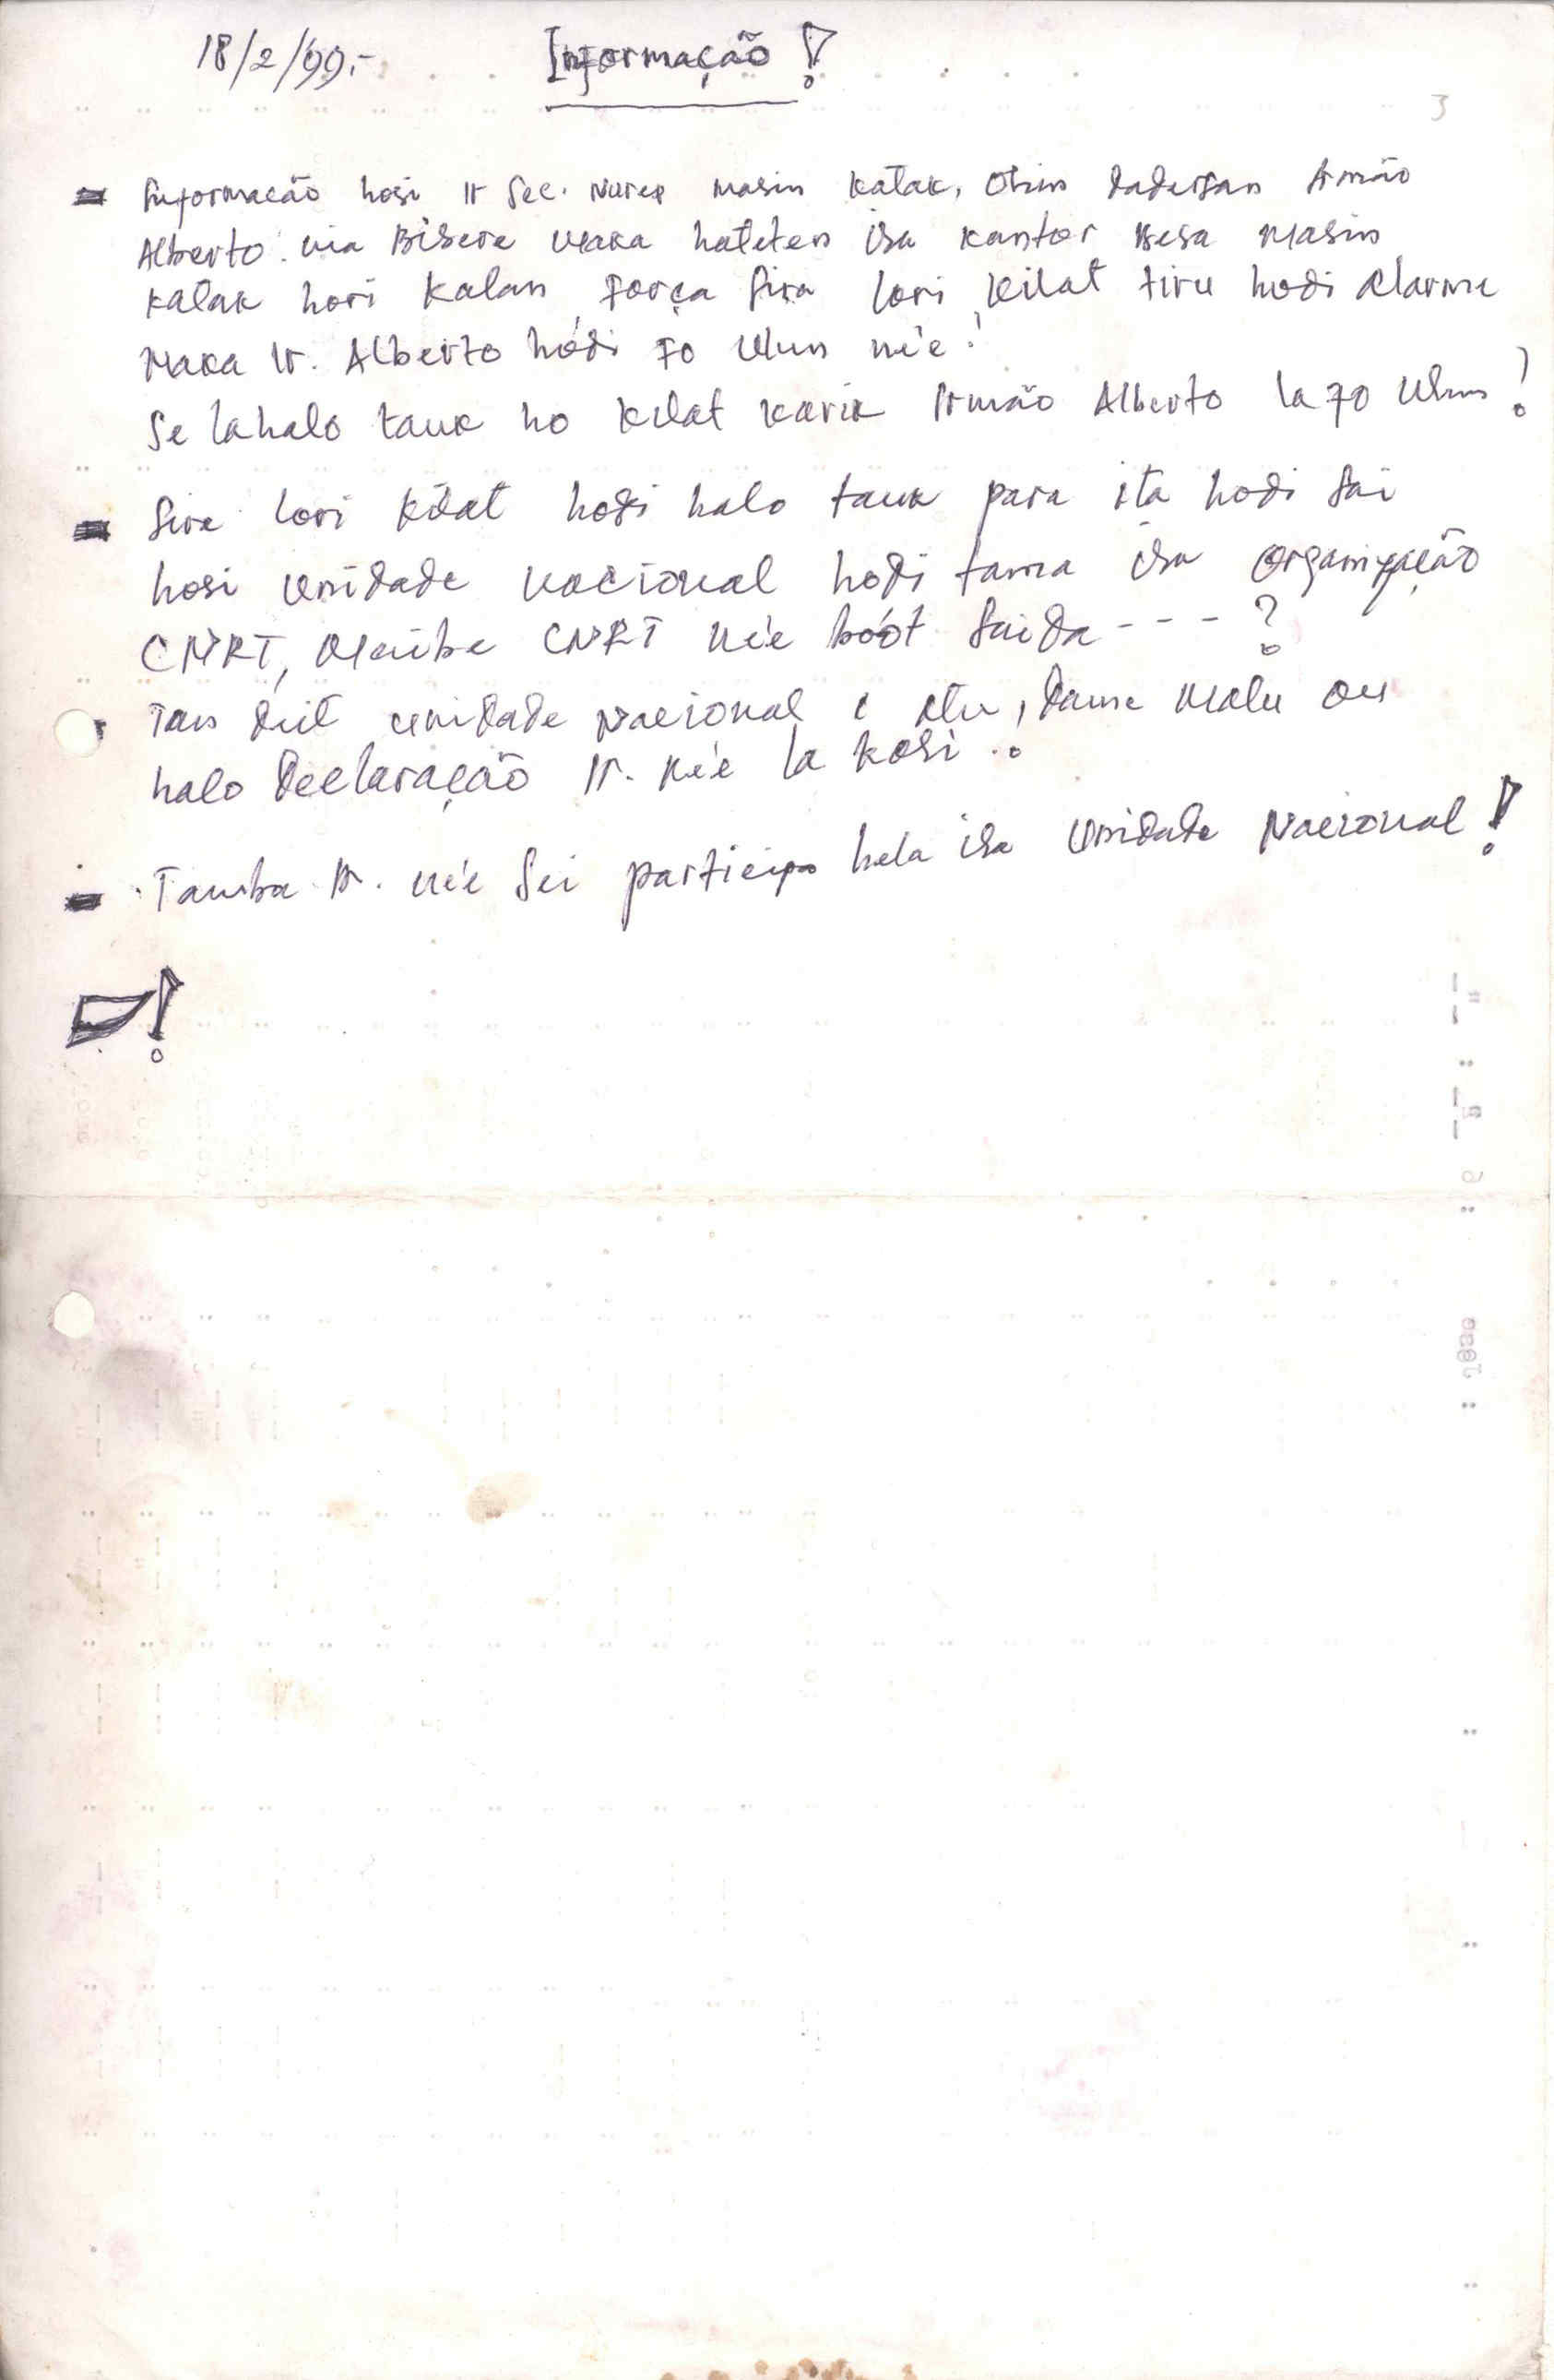 18/2/99.-
Informação!
3
Informação hosi Ir Sec. Nurep masin katak, Ohin dadersan Irmão
Alberto mia Bisere maka hateten iha kantor Desa Masin
katak hori kalan força sira lori kilat tiru hodi alarme
Maka Ir. Alberto hódi fo ulun né'e!
Se la halo tauk ho kilat karik Irmão Alberto la fo ulun!
Sira lori kilat hodi halo tauk para ita hodi sai
hosi unidade nacional hodi tama iha organização
CNRT, Maibe CNRT né'e bóót saida - - - ?
Tan deit unidade Nacional e atu, dame malu ou
halo Declaração Ir. né'e la kosi..
Tamba Ir. né'e sei participa hela iha Unidade Nacional!
!